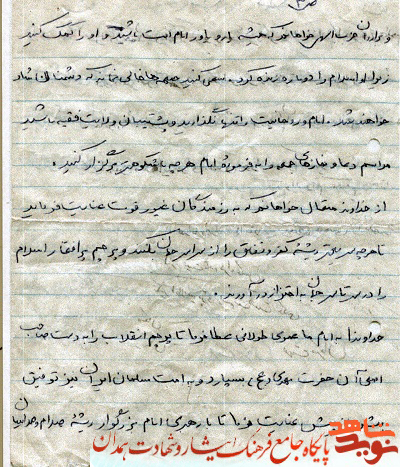 ۳
و برادران حزب اللهی میخواهم که همیشه یار و یاور امام امت باشید و او را کمک کنید
زیرا او اسلام را دوباره زنده کرد. سعی کنید صحنه ها خالی نماند که دشمنان شاد
خواهند شد. امام و روحانیت را تنها نگذارید و پشتیبان ولایت فقیه باشید
مراسم دعا و نمازهای جمعه را به فرموده امام هر چه با شکوهتر برگزار کنید.
از خداوند متعال خواهانم که به رزمندگان غیور قوت عنایت فرماید
تا هر چه سریعتر ریشه کفر و نفاق را از سراسر جهان بکنند و پرچم پر افتخار اسلام
را در سرتاسر جهان به اهتزاز در آورند.
خداوندا به امام ما عمری طولانی عطا فرما تا پرچم انقلاب را به دست صاحب
اصلی آن حضرت مهدی (عج) بسپارد و به امت مسلمان ایران نیز توفیق
عنایت فرما تا با رهبری امام بزرگوار ریشه صدام و صدامیان
نوید شاهد
پایگاه جامع فرهنگ ایثار و شهادت همدان